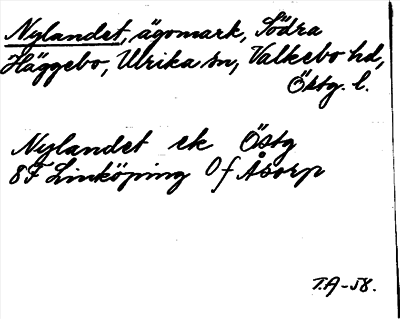 Nylandet, ägomark, Södra
Häggebo, Ulrika sn, Valkebo hd,
Östg. l.
Nylandet ek Östg
8F Linköping Of Åsorp
T.A-58.